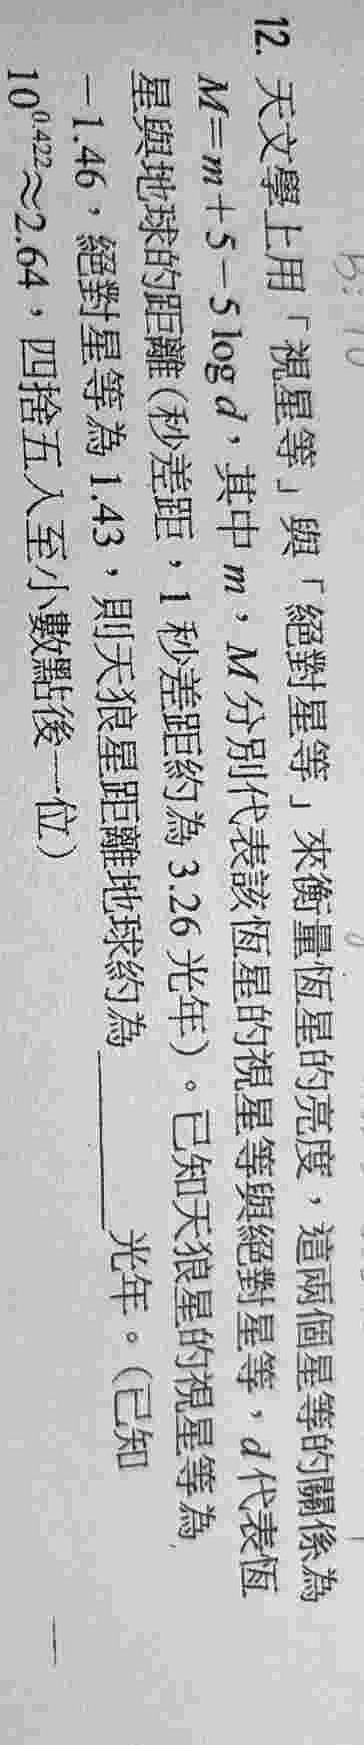 12. 天文學上用「視星等」與「絕對星等」來衡量恆星的亮度，這兩個星等的關係為
M=m+5-5 log d，其中 m，M 分別代表該恆星的視星等與絕對星等，d 代表恆
星與地球的距離(秒差距，1 秒差距約為 3.26 光年)。已知天狼星的視星等為
-1.46，絕對星等為 1.43，則天狼星距離地球約為______光年。(已知
10^0.422≈2.64，四捨五入至小數點後一位)